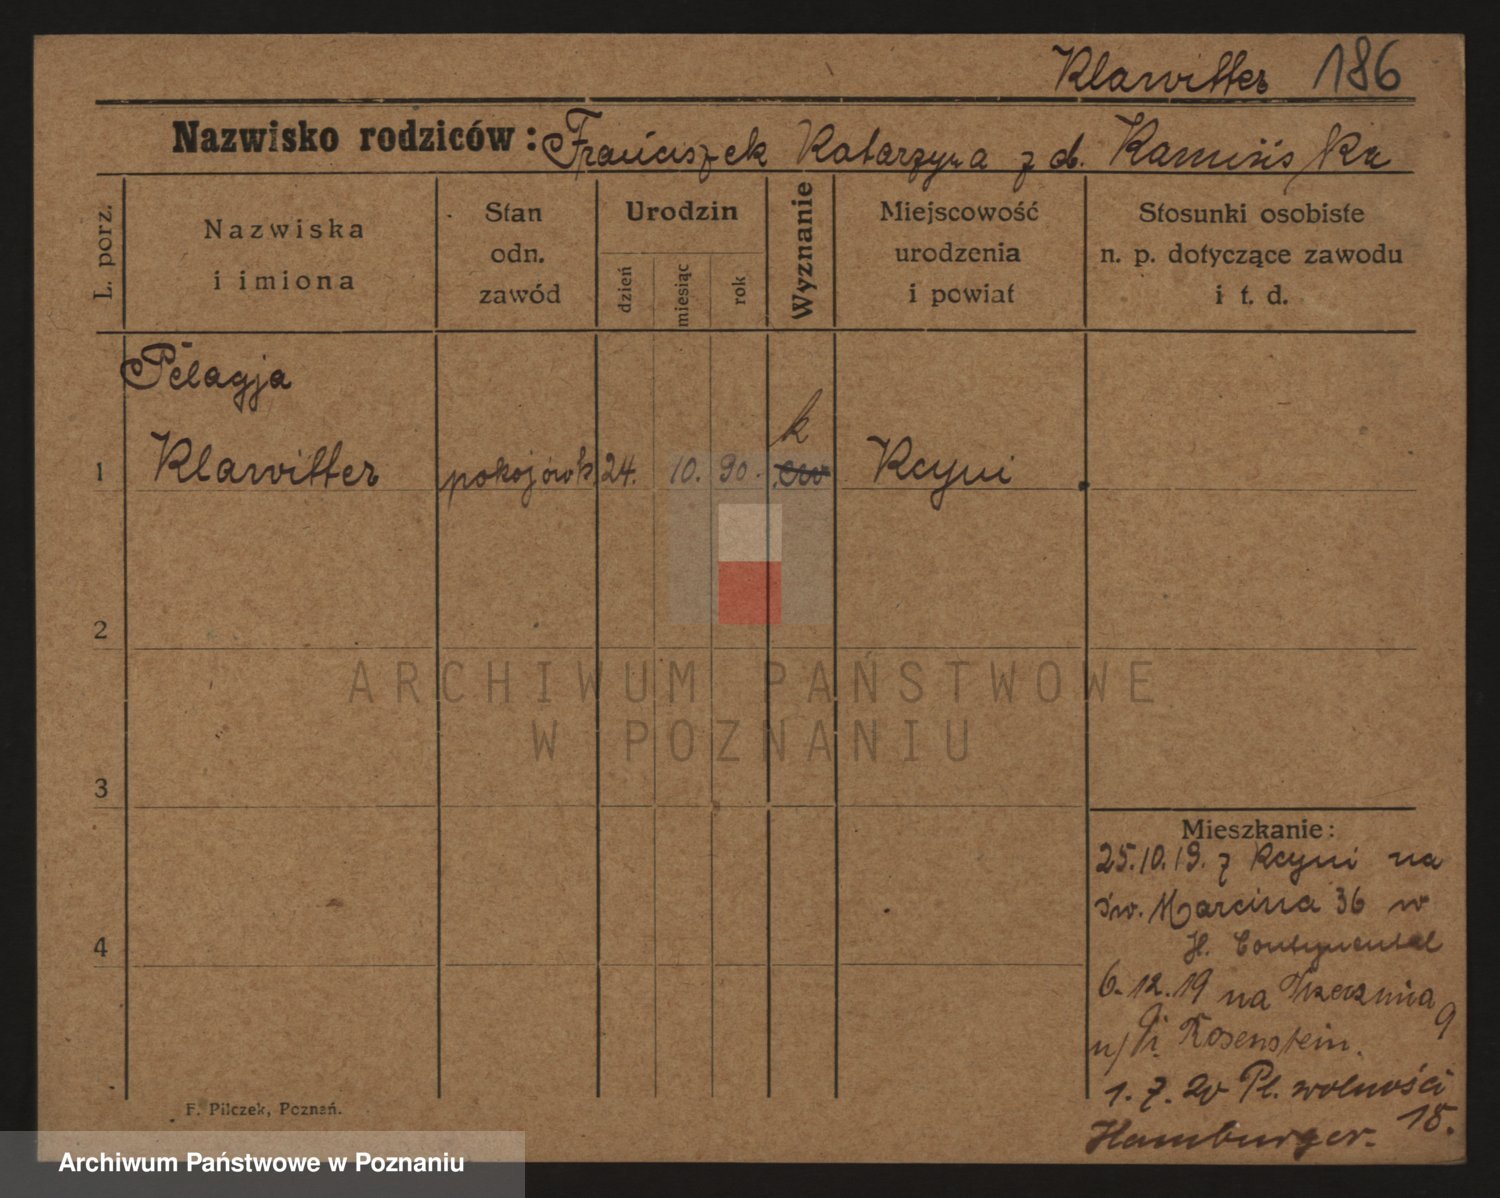 Klawitter 186
Nazwisko rodziców: Franciszek Katarzyna z d. Kamińska
L. porz.
Nazwiska
i imiona
Stan
odn.
zawód
Urodzin
dzień
miesiąc
rok
Wyznanie
Miejscowość
urodzenia
i powiat
Stosunki osobiste
n. p. dotyczące zawodu
i t. d.
Pelagja
k
1 Klawitter pokojówk 24. 10. 90. ew Kcyni
2
ARCHIWUM PAŃSTWOWE
W POZNANIU
3
Mieszkanie:
25.10.19. z Kcyni na
św. Marcina 36 w
H. Continental
4
6.12.19 na 9
u/ Rosenstein.
1.7.20 Pl. wolności
18.
Hamburger.
F. Pilczek, Poznań.
Archiwum Państwowe w Poznaniu